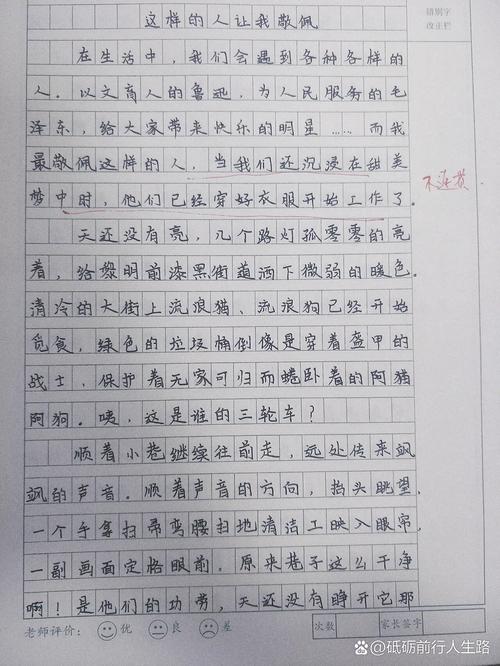 错别字
改正栏
这样的人让我敬佩
在生活中，我们会遇到各种各样的
人．以文育人的鲁迅，为人民服务的毛
泽东，给大家带来快乐的明星……而我
最敬佩这样的人，当我们还沉浸在甜美
梦中时，他们已经穿好衣服开始工作了．
不连贯
天还没有亮，几个路灯孤零零的亮
着，给黎明前漆黑街道洒下微弱的暖色．
清冷的大街上流浪猫、流浪狗已经开始
觅食，绿色的垃圾桶倒像是穿着盔甲的
战士，保护着无家可归而蜷卧着的阿猫
阿狗．咦，这是谁的三轮车？
顺着小巷继续往前走，远处传来飒
飒的声音．顺着声音的方向，抬头眺望，
一个手拿扫帚弯腰扫地清洁工映入眼帘，
一副画面定格眼前．原来巷子这么干净
啊！是他们的功劳，天还没有睁开它那
老师评价： 优 良 差 次数 家长签字
@砥砺前行人生路